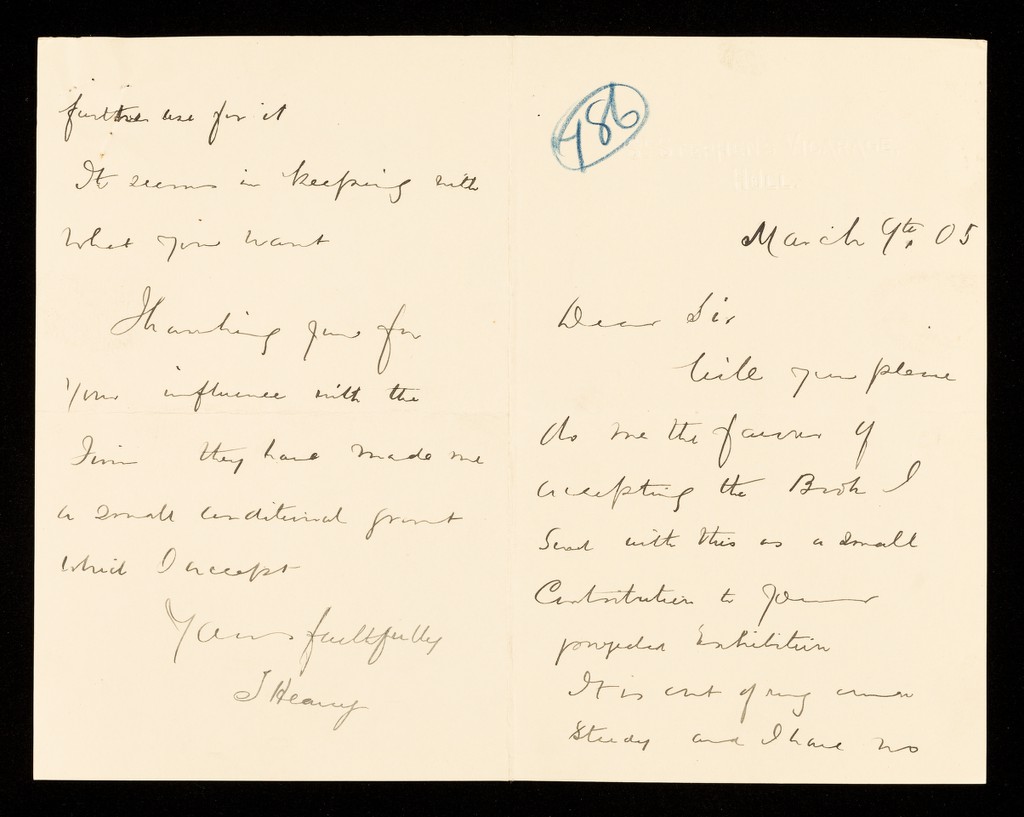 786
VICARAGE
HULL
March 9th. 05
Dear Sir
Will you please
do me the favour of
accepting the Book I
Send with this as a small
Contribution to your
proposed Exhibition
It is out of my own
Study and I have no
further use for it
It seems in keeping with
what you want
Thanking you for
your influence with the
Firm they have made me
a small conditional grant
which I accept
Yours faithfully
J Heany